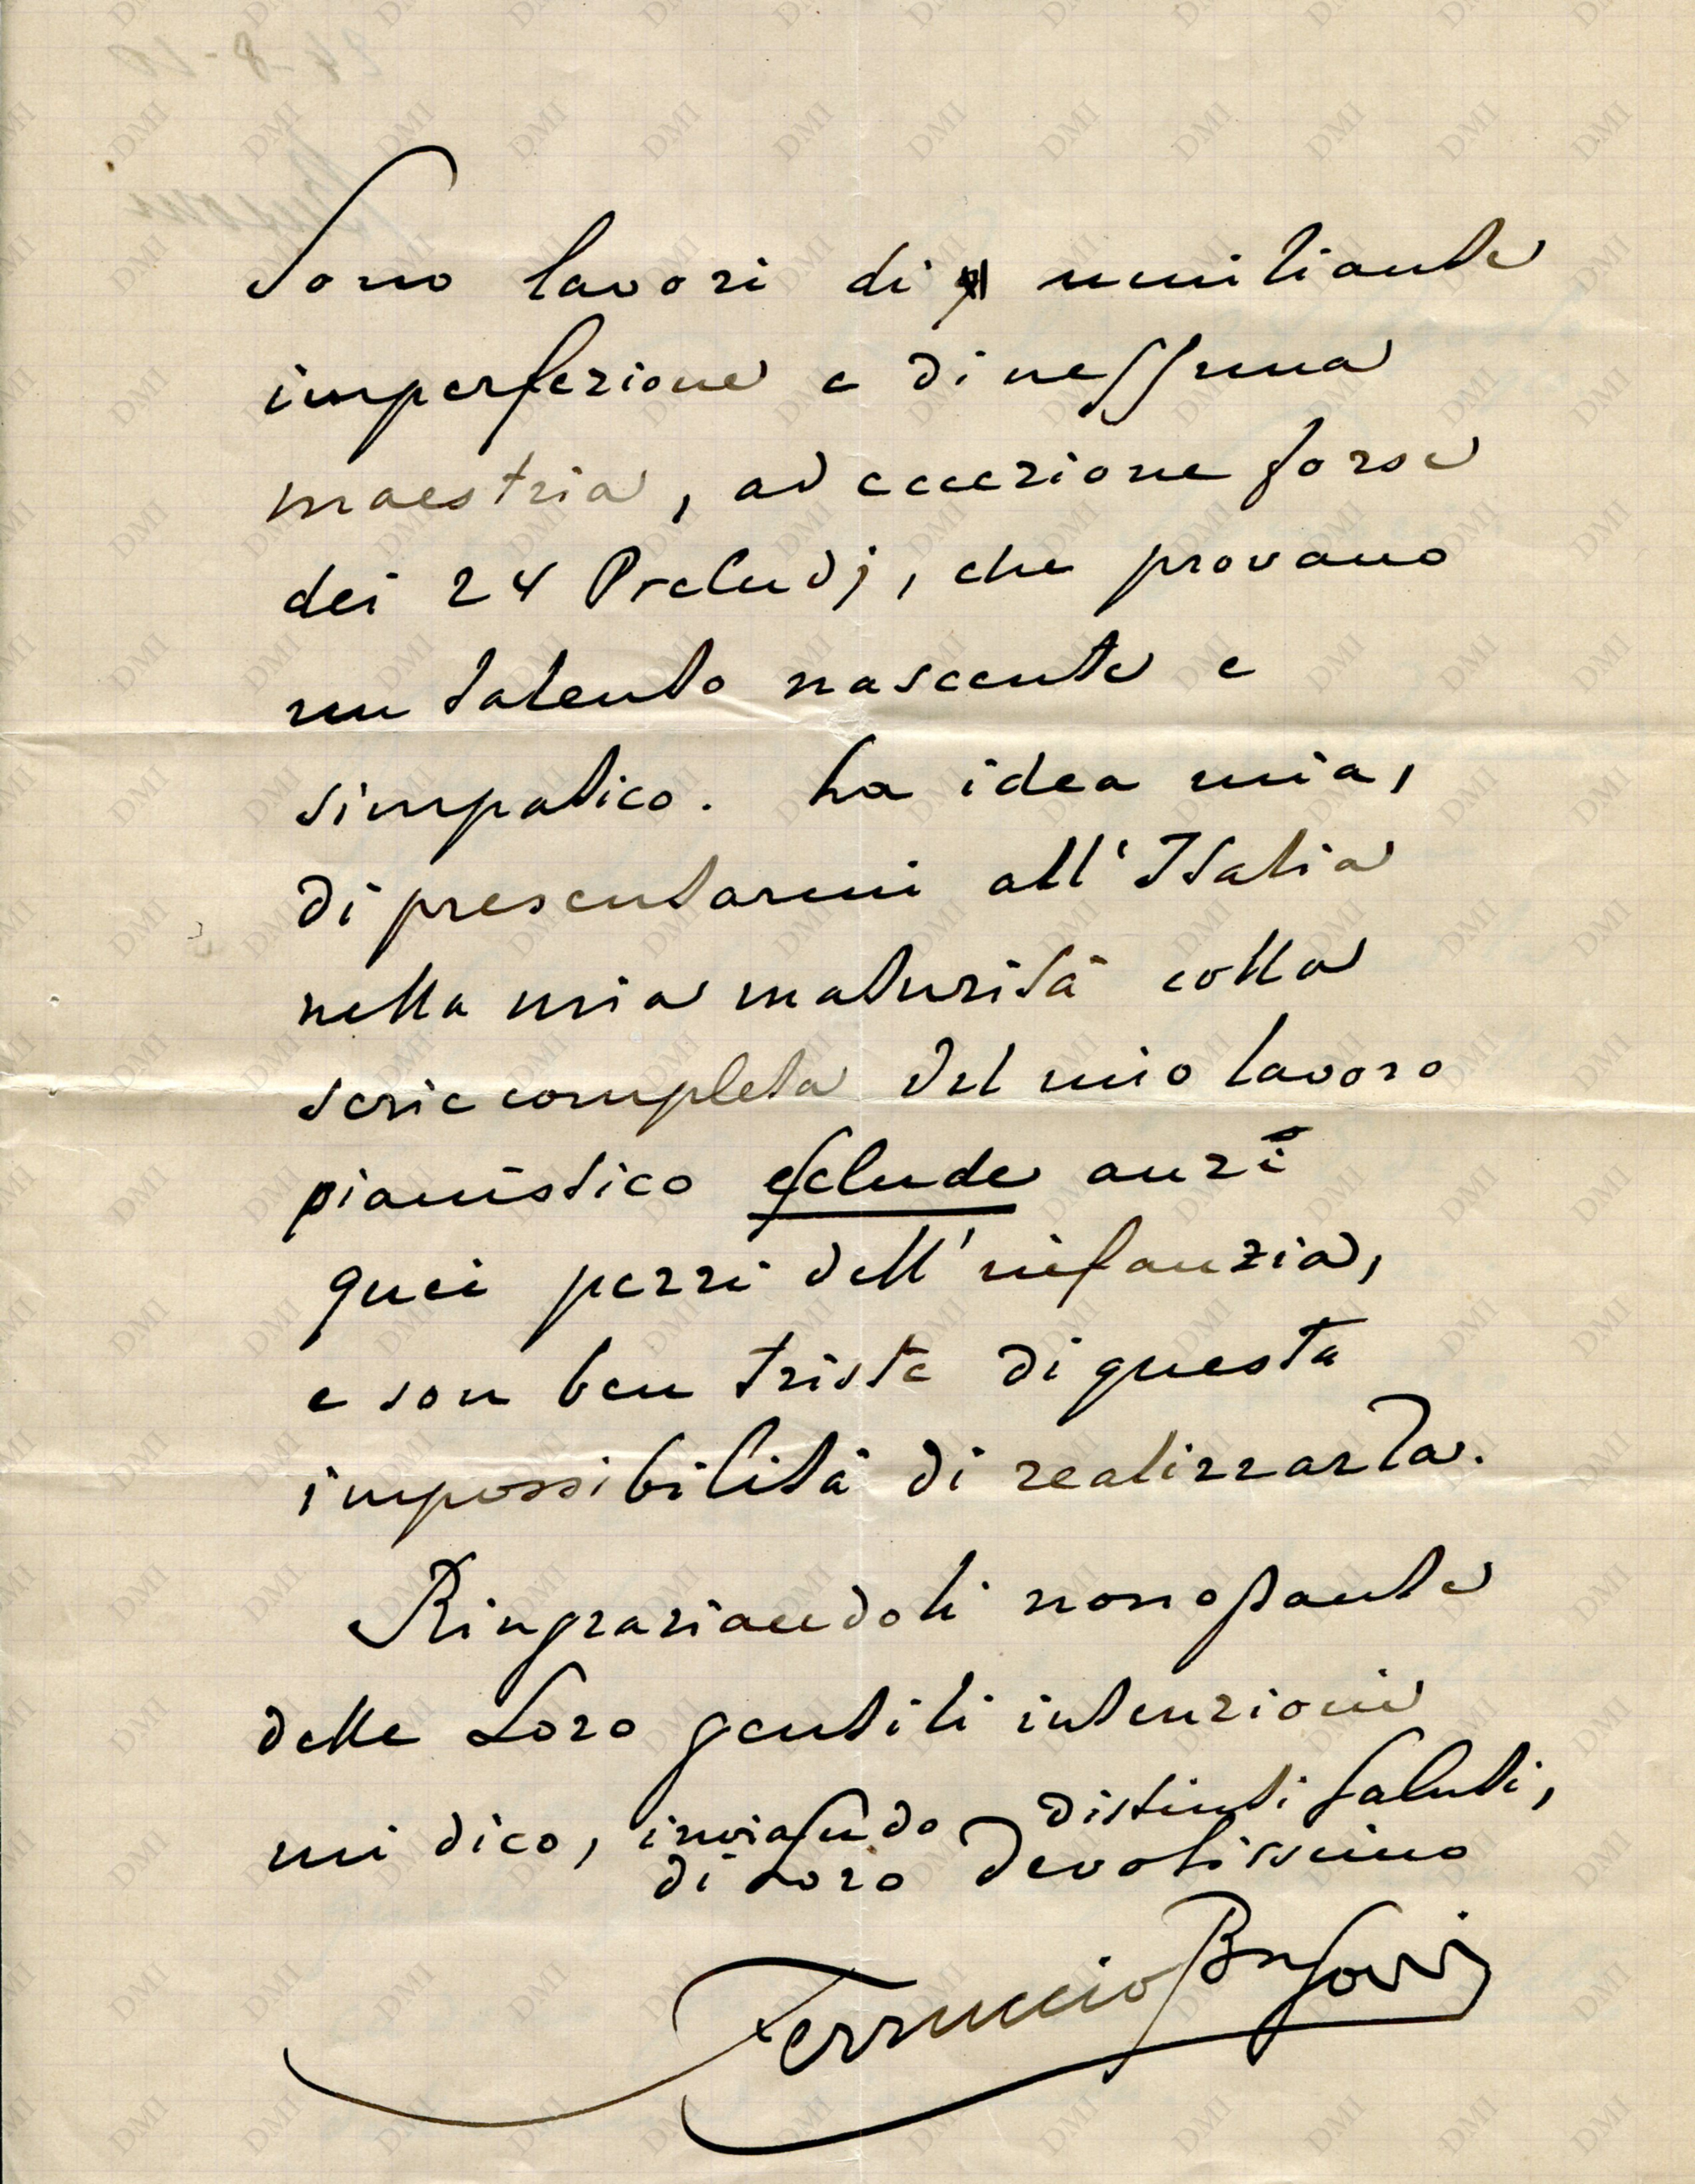 Sono lavori di umiliante
imperfezione e di nessuna
maestria, ad eccezione forse
dei 24 Preludj, che provano
un talento nascente e
simpatico. La idea mia,
di presentarmi all'Italia
nella mia maturità colla
serie completa del mio lavoro
pianistico esclude anzi
quei pezzi dell'infanzia,
e son ben triste di questa
impossibilità di realizzarla.
Ringraziandoli nonostante
delle Loro gentili intenzioni
mi dico, inviando distinti saluti,
di Loro devotissimo
Ferruccio Busoni